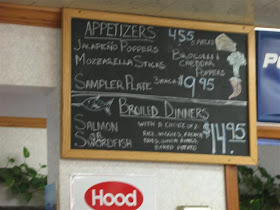 APPETIZERS 4.55
JALAPEÑO POPPERS
MOZZARELLA STICKS
BROCCOLI &
CHEDDAR
POPPERS
SAMPLER PLATE $9.95
BROILED DINNERS
SALMON
OR
SWORDFISH
WITH A CHOICE OF 2
BAKED POTATO
$14.95
Hood